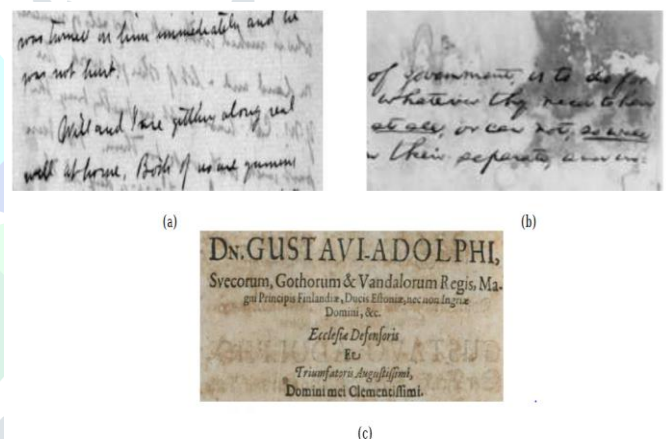 was turned on him immediately and he
was not hurt.
Will and I are getting along real
well at home. Both of us are
(a)
of government, is to do for
whatever they need to have
at all, or can not, so well
their separate, and in
(b)
DN. GUSTAVI-ADOLPHI,
Svecorum, Gothorum & Vandalorum Regis, Ma-
gni Principis Finlandiæ, Ducis Estoniæ, nec non Ingriæ
Domini, &c.
Ecclesiæ Defensoris
Et
Triumfatoris Augustissimi,
Domini mei Clementissimi.
(c)